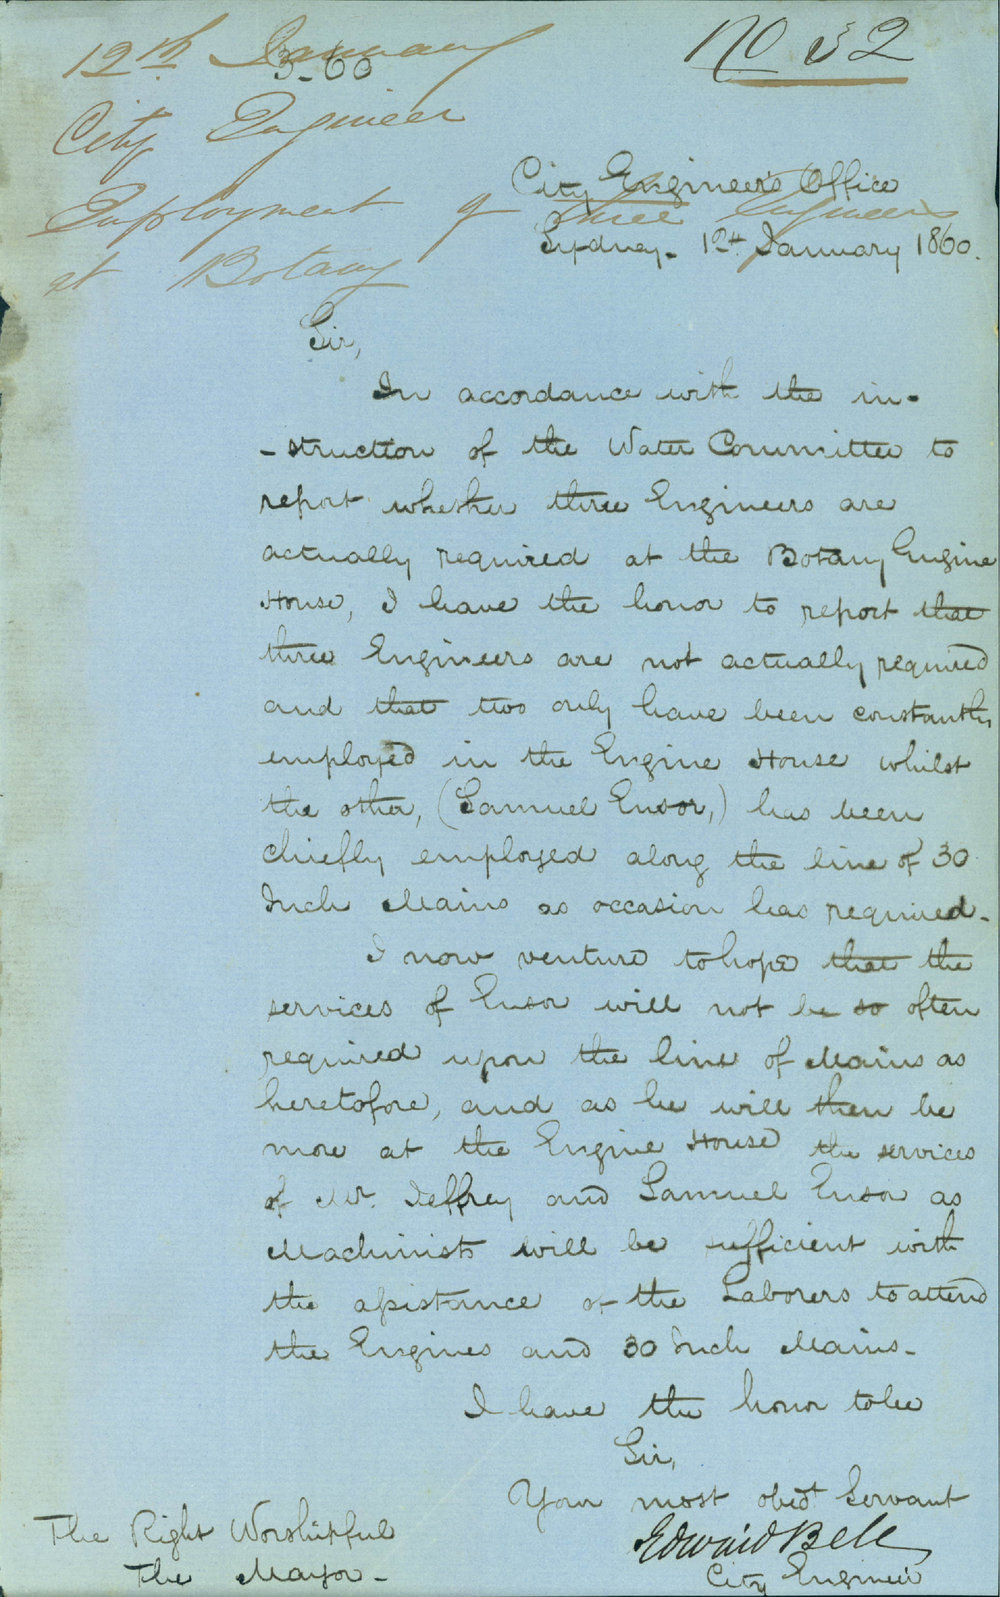 12th January
3-60
No 32
City Engineer
Employment of three Engineers
at Botany
City Engineer's Office
Sydney - 12th January 1860.
Sir,
In accordance with the in-
-struction of the Water Committee to
report whether three Engineers are
actually required at the Botany Engine
House, I have the honor to report that
three Engineers are not actually required
and that two only have been constantly
employed in the Engine House whilst
the other, (Samuel Ensor,) has been
chiefly employed along the line of 30
Inch Mains as occasion has required.
I now venture to hope that the
services of Ensor will not be so often
required upon the line of Mains as
heretofore, and as he will then be
more at the Engine House the services
of Mr. Jeffrey and Samuel Ensor as
Machinists will be sufficient with
the assistance of the Laborers to attend
the Engines and 30 Inch Mains -
I have the honor to be
Sir,
Your most obedt Servant
Edward Bell
City Engineer
The Right Worshipful
The Mayor -